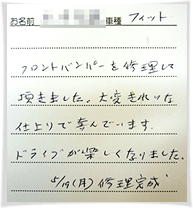 お名前 車種 フィット
フロントバンパーを修理して
頂きました。大変きれいな
仕上りで喜んでいます。
ドライブが楽しくなりました。
5/19(月) 修理完成